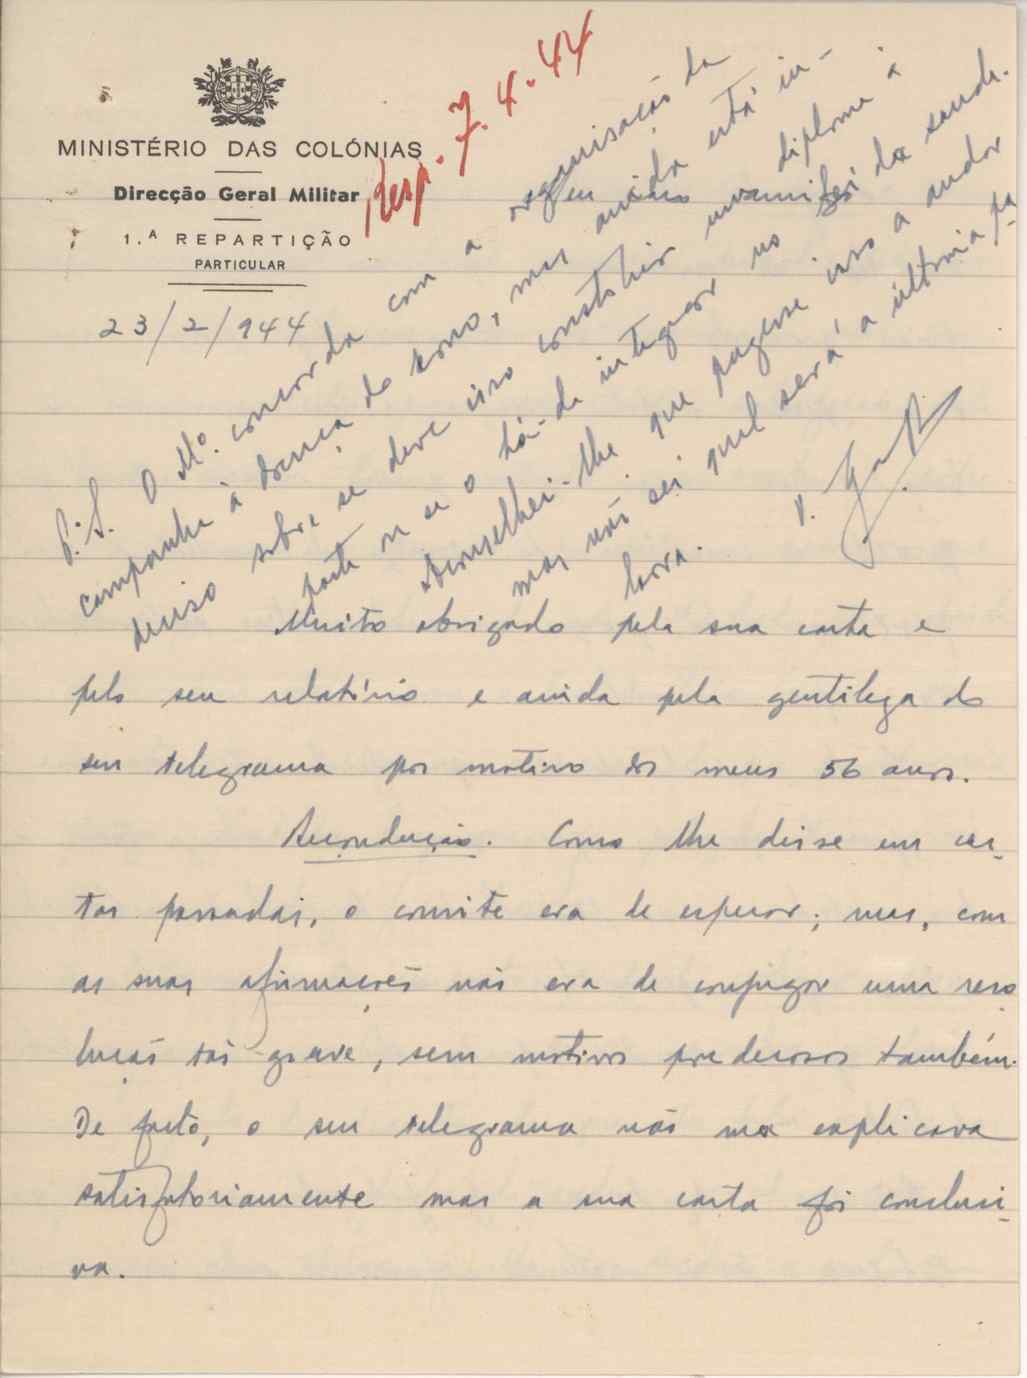 MINISTÉRIO DAS COLÓNIAS
Direcção Geral Militar
1.ª REPARTIÇÃO
PARTICULAR
23/2/944
Resp. 7.4.44
P.S. O Mº. concorda com a organisação da
campanha à doença do sono, mas ainda está in-
deciso sobre se deve isso constituir um diploma à
parte ou se o há-de integrar no da saude.
Aconselhei-lhe que pusesse isso a andar
mas não sei qual será a última pa
lavra.
Muito obrigado pela sua carta e
pelo seu relatório e ainda pela gentileza do
seu telegrama por motivo dos meus 56 anos.
Recondução. Como lhe disse em car-
tas passadas, o convite era de esperar; mas, com
as suas afirmações não era de conjugar uma reso
lução tão grave, sem motivos poderosos também.
De facto, o seu telegrama não ma explicava
satisfatoriamente mas a sua carta foi conclusi-
va.